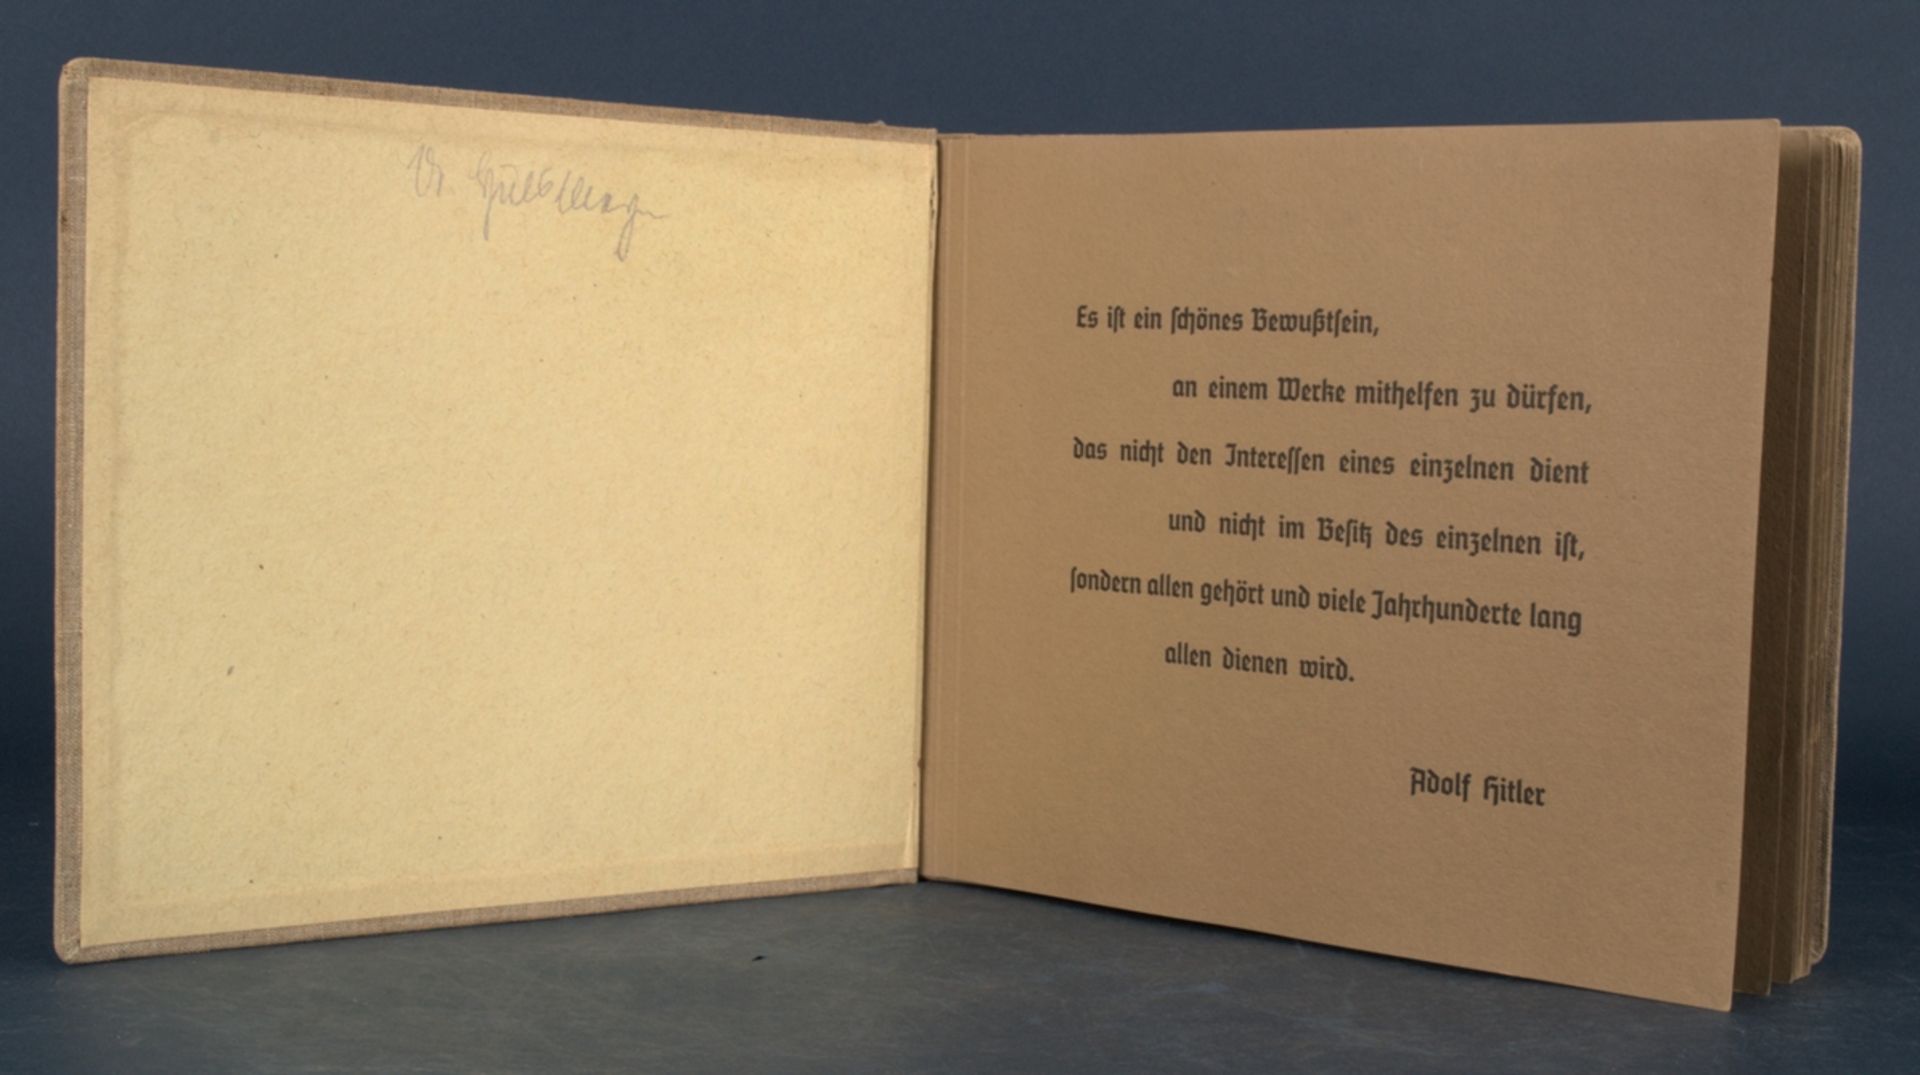 Es ist ein schönes Bewußtsein,
an einem Werke mithelfen zu dürfen,
das nicht den Interessen eines einzelnen dient
und nicht im Besitz des einzelnen ist,
sondern allen gehört und viele Jahrhunderte lang
allen dienen wird.
Adolf Hitler